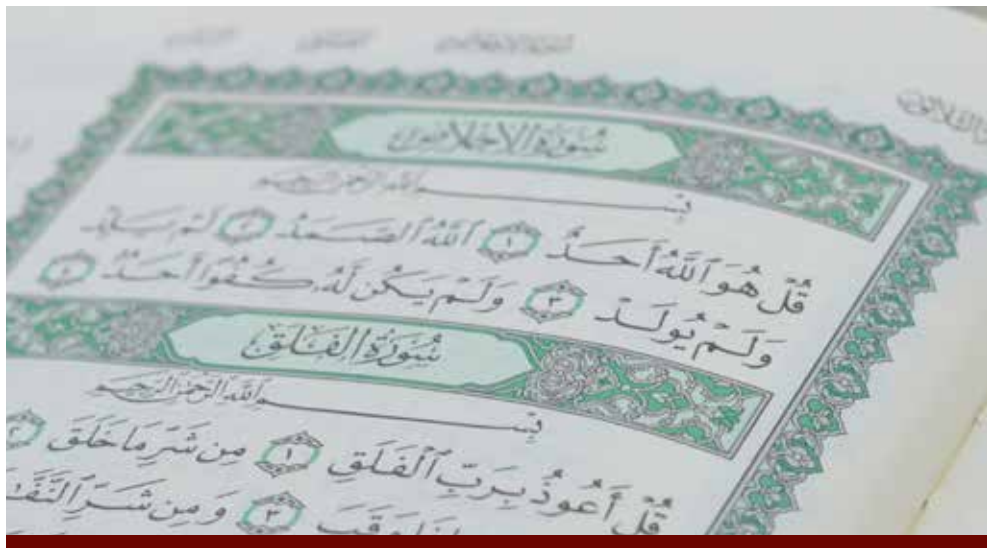 سُورَةُ الإِخْلَاصِ
بِسْمِ اللَّهِ الرَّحْمَٰنِ الرَّحِيمِ
قُلْ هُوَ ٱللَّهُ أَحَدٌ ١ ٱللَّهُ ٱلصَّمَدُ ٢ لَمْ يَلِدْ
وَلَمْ يُولَدْ ٣ وَلَمْ يَكُن لَّهُۥ كُفُوًا أَحَدٌۢ ٤
سُورَةُ الْفَلَقِ
بِسْمِ اللَّهِ الرَّحْمَٰنِ الرَّحِيمِ
قُلْ أَعُوذُ بِرَبِّ ٱلْفَلَقِ ١ مِن شَرِّ مَا خَلَقَ ٢
وَقَبَ ٣ وَمِن شَرِّ